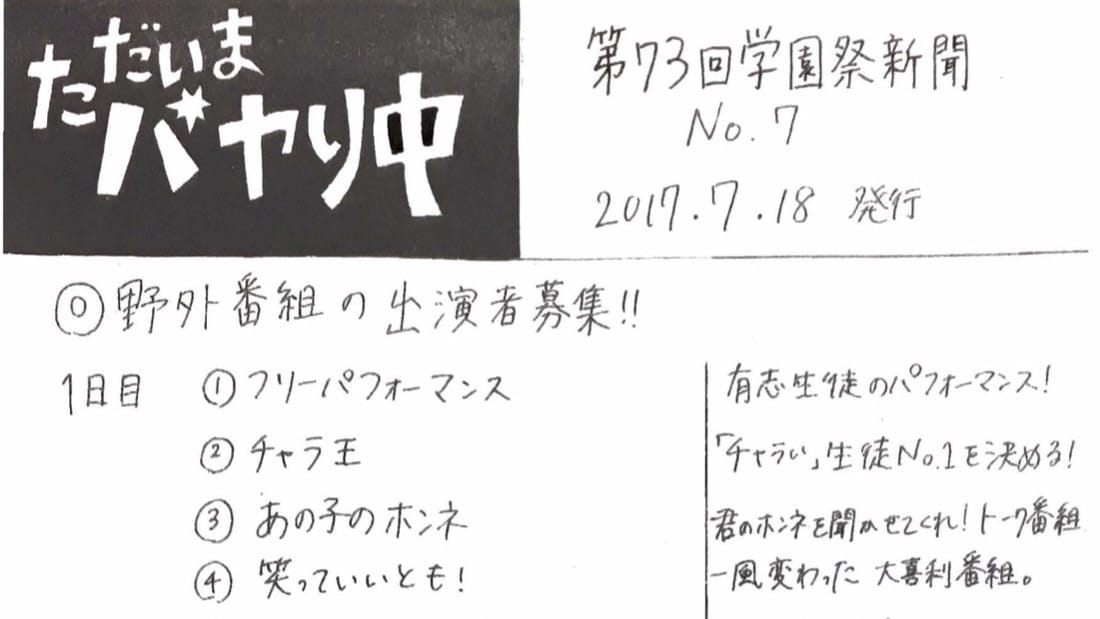 ただいま
バヤリ中
第73回学園祭新聞
No.7
2017.7.18 発行
◎野外番組の出演者募集!!
1日目 ①フリーパフォーマンス 有志生徒のパフォーマンス!
②チャラ王 「チャラい」生徒No.1を決める!
③あの子のホンネ 君のホンネを聞かせてくれ!トーク番組
④笑っていいとも! 一風変わった大喜利番組。